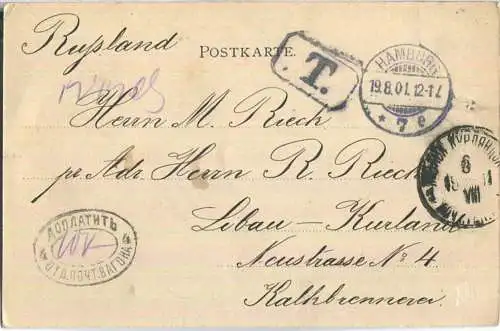 Rußland
POSTKARTE.
T.
HAMBURG
19.8.01. 12-1
* 7 e
Herrn M. Riech
pr. Adr. Herrn R. Riech
Libau – Kurland
Neustrasse No. 4
Kalkbrennerei.
6
VIII
ДОПЛАТИТЬ
4 10 к 4
ОТД. ПОЧТ. ВАГОНА